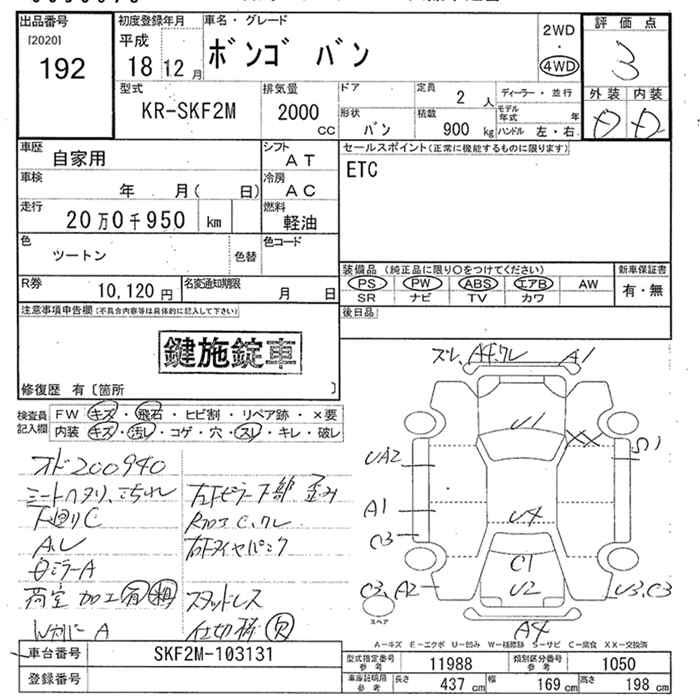 出品番号
[2020]
192
初度登録年月
平成
18 12 月
車名・グレード
ボンゴ バン
2WD
・
4WD
評価点
3
外装 内装
型式
KR-SKF2M
排気量
2000
cc
ドア
形状
バン
定員
2 人
積載
900 kg
ディーラー・並行
モデル年式 年
ハンドル 左・右
車歴
自家用
シフト
AT
車検
年 月( 日)
冷房
AC
走行
20万0千950 km
燃料
軽油
色
ツートン
色替
色コード
R券
10,120 円
名変通知期限
月 日
セールスポイント(正常に機能するものに限ります)
ETC
装備品 (純正品に限り○をつけてください)
PS PW ABS エアB AW
SR ナビ TV カワ
新車保証書
有・無
後日品
注意事項申告欄(不具合内容等は具体的に記入して下さい)
鍵施錠車
修復歴 有〔箇所 〕
検査員
記入欄
FW キズ・飛石・ヒビ割・リペア跡・×要
内装 キズ・汚レ・コゲ・穴・スレ・キレ・破レ
オド200940
シートヘタリ、こすれ
下廻りC
白ミラーA
荷室 加工有
WカバーA
下部 歪み
スタッドレス
ズレ、A4、クレ A1
U1
UA2
A1
C3
U4
C1
U2
C3、A2
U3、C3
A4
スペア
A-キズ E-エクボ U-凹み W-補修跡 S-サビ C-腐食 XX-交換済
車台番号
SKF2M-103131
登録番号
型式指定番号
参考
11988
類別区分番号
参考
1050
車庫証明用
参考
長さ 437 cm 幅 169 cm 高さ 198 cm